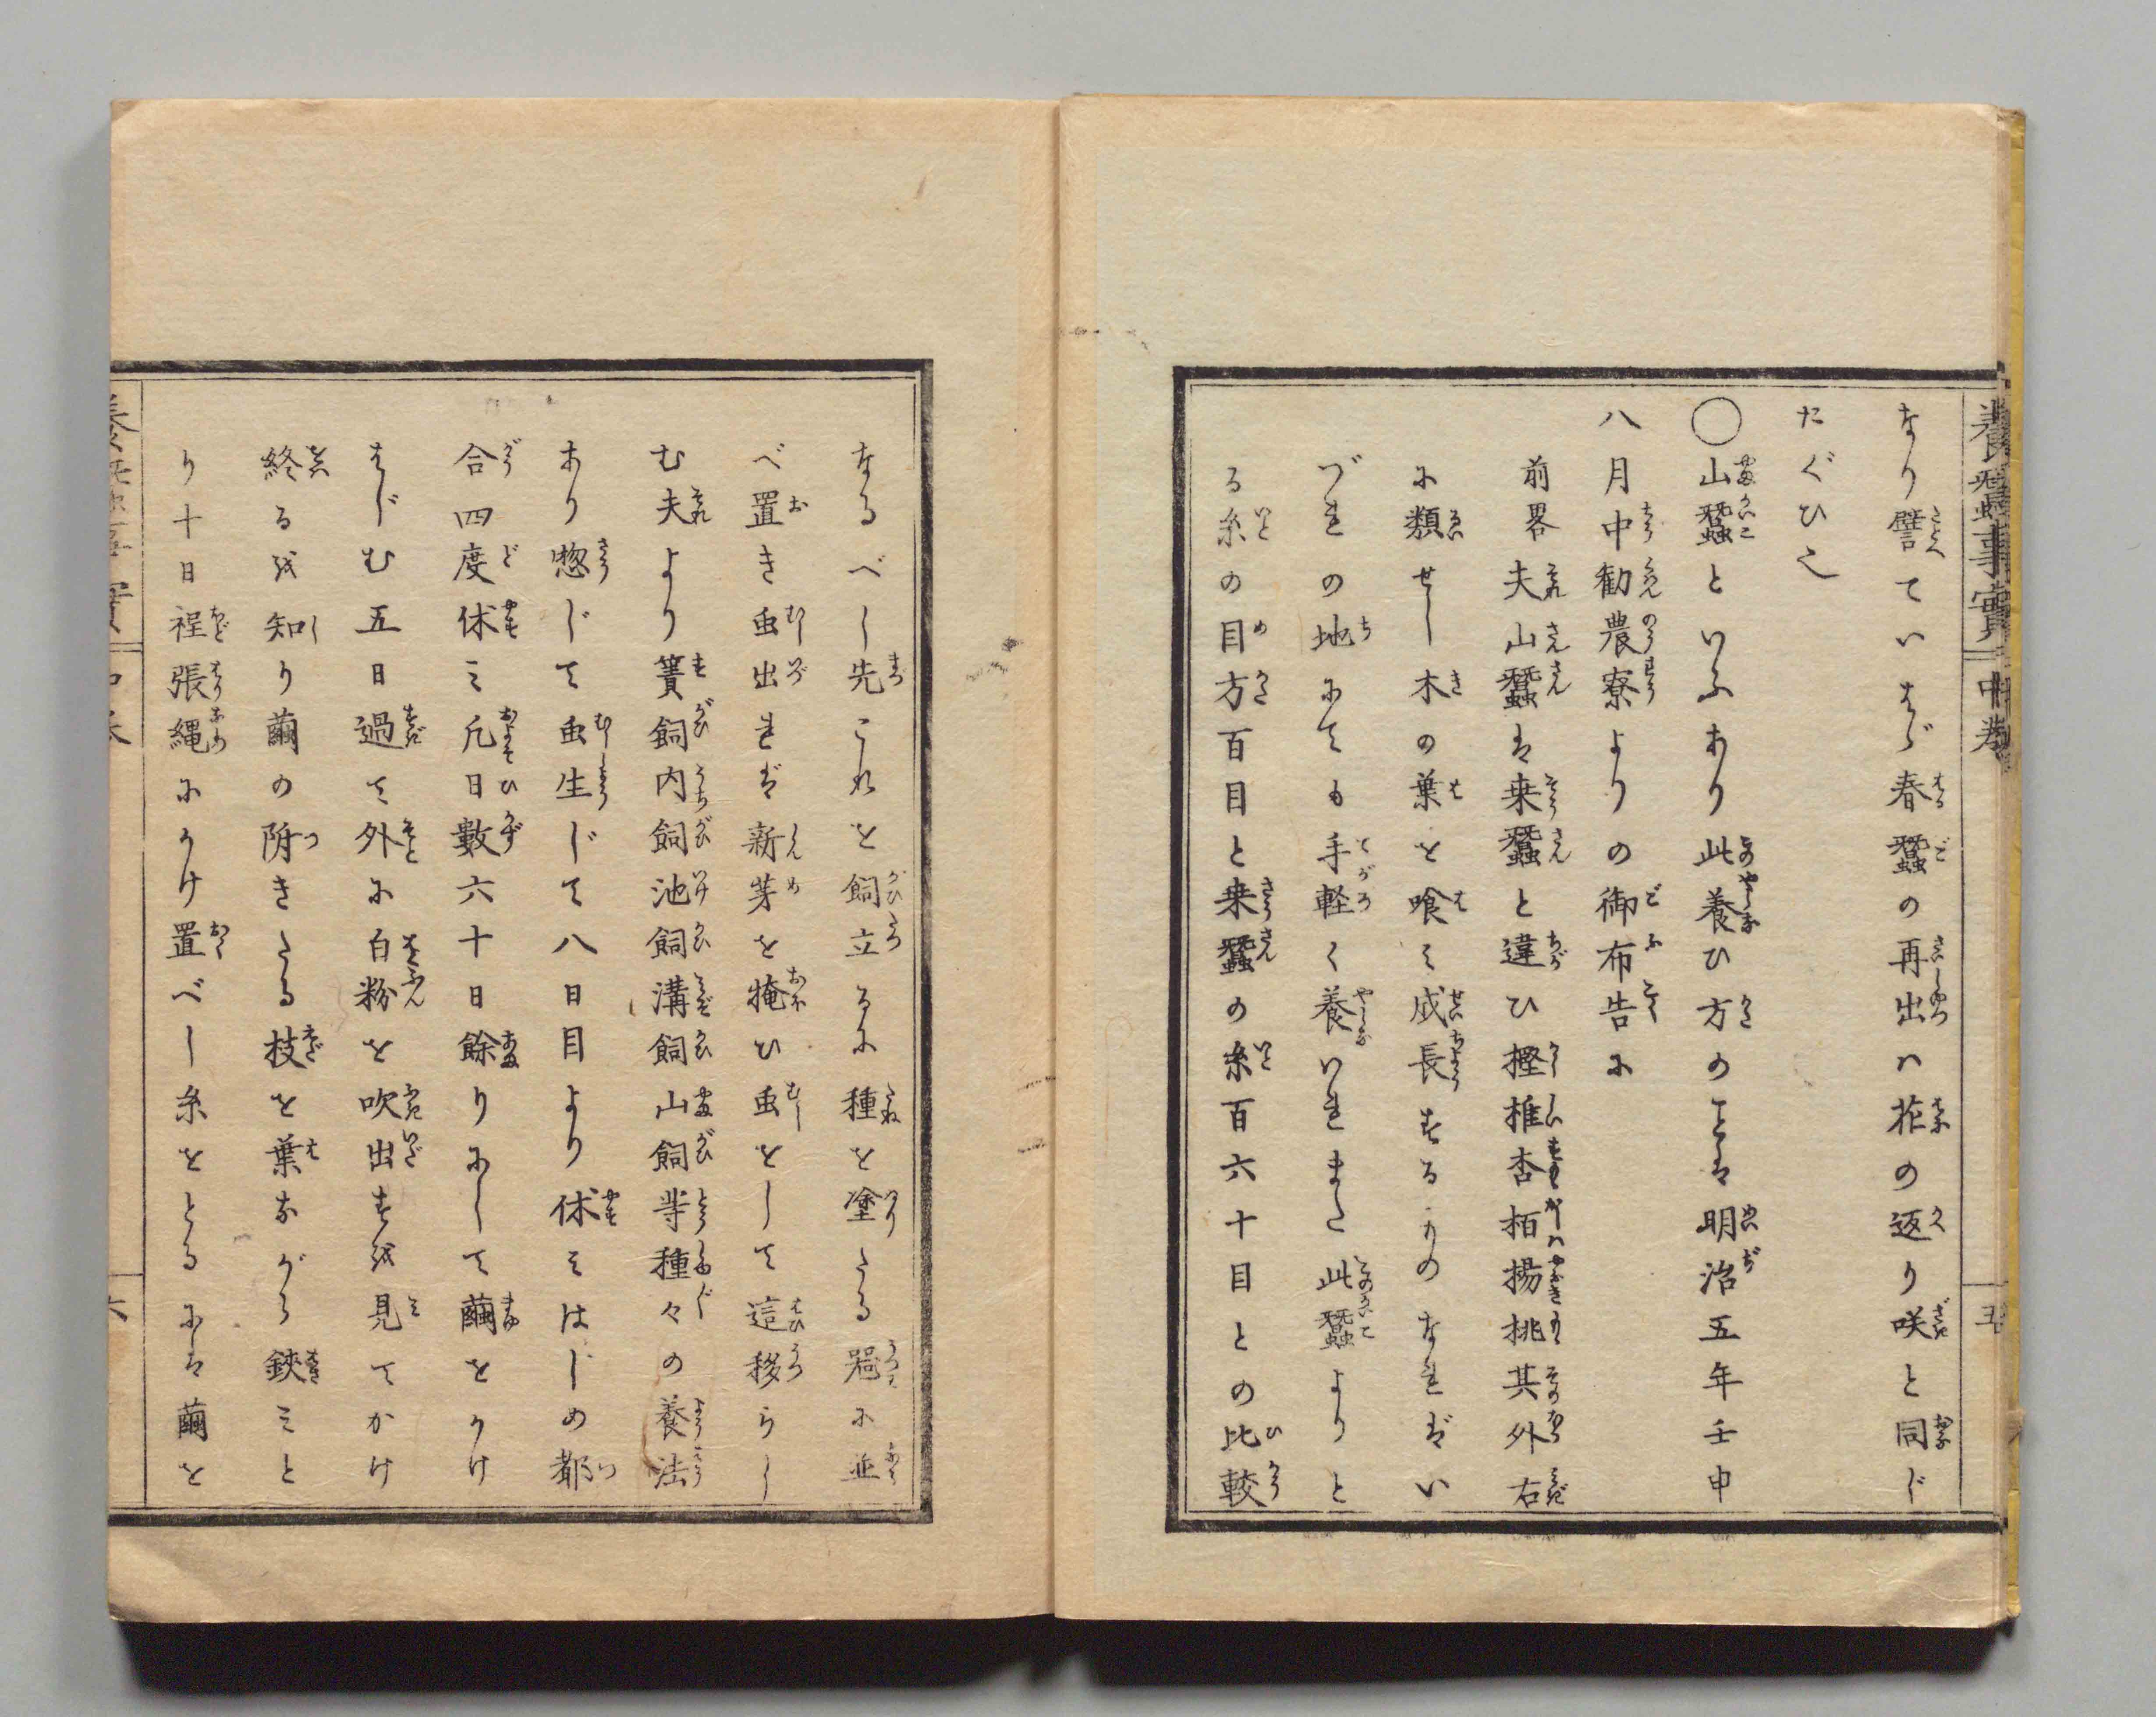 養蠶事實 中卷 五
なり譬ていはゞ春蠶の再出ハ花の返り咲と同じ
たぐひ之
○山蠶といふあり此養ひ方のことは明治五年壬申
八月中勧農寮よりの御布告に
前畧夫山蠶は桒蠶と違ひ樫椎杏栢楊桃其外右
に類せし木の葉を喰ミ成長するものなれバい
づれの地にても手軽く養いれまた此蠶よりと
る糸の目方百目と桒蠶の糸百六十目との比較
なるべし先これを飼立るに種を塗たる噐に並
べ置き虫出れバ新芽を掩ひ虫をして這移らし
む夫より簀飼内飼池飼溝飼山飼等種々の養法
あり惣じて虫生じて八日目より休ミはじめ都
合四度休ミ凡日數六十日餘りにして繭をかけ
はじむ五日過て外に白粉を吹出すを見てかけ
終るを知り繭の附きたる枝を葉ながら鋏ミと
り十日程張縄にかけ置べし糸をとるには繭を